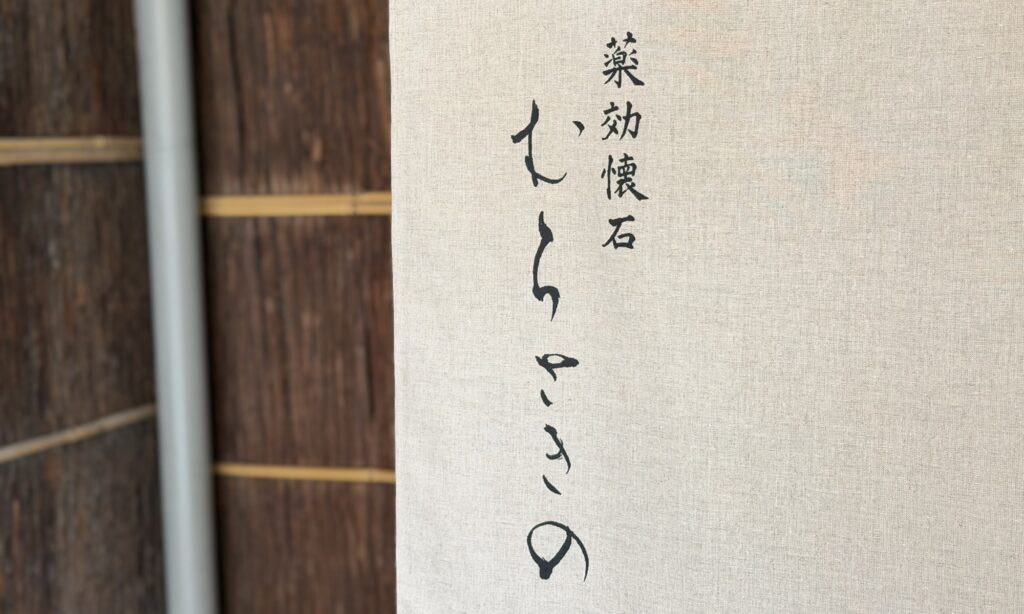 薬効懐石
むらさきの